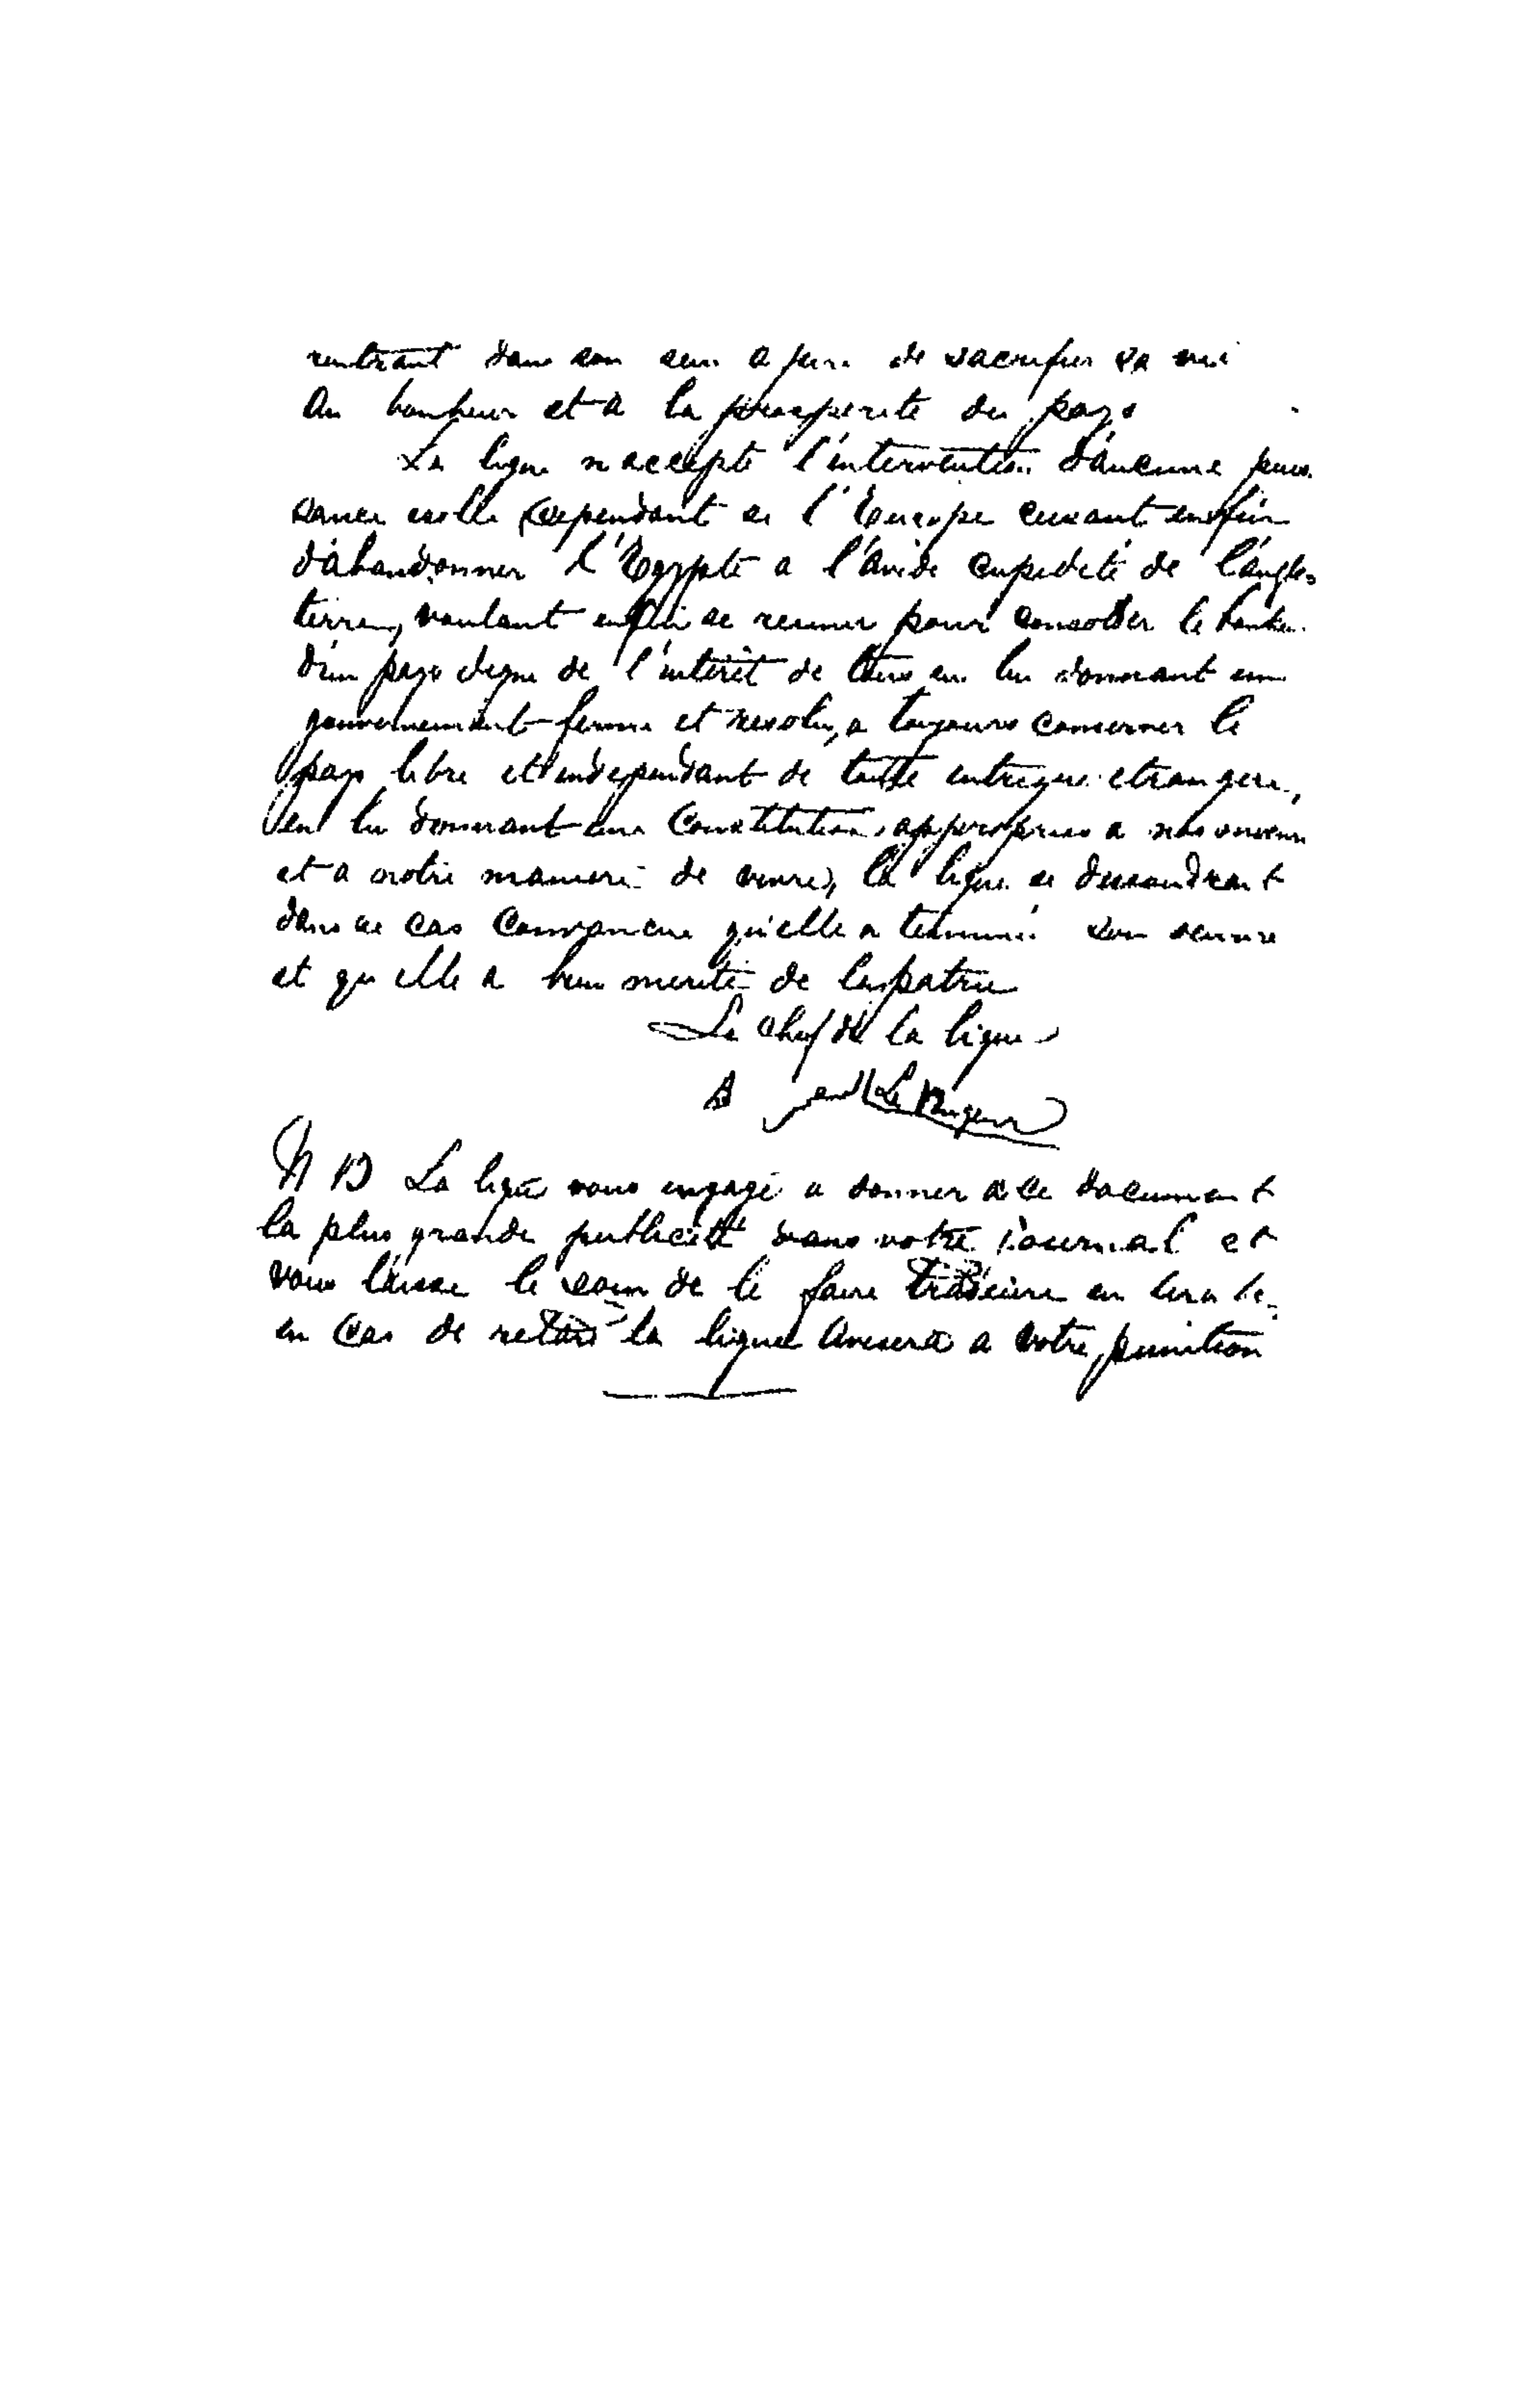 rentrant dans son sein a juré de sacrifier sa vie
Au bonheur et a la prosperite du pays
La ligue n'accepte l'intervention d'aucune puis
sance isolle cependant si l'Europe cessant enfin
d'abandonner l'Egypte a l'avide cupidité de l'angle=
terre, voulant enfin se reunir pour consolider le bonheur
d'un pays digne de l'intérêt de tous en lui donnant un
gouvernement ferme et resolu, a toujours conserver le
pays libre et independant de toute intrigue etrangere,
en lui donnant une Constitution, appropriee a nos moeurs
et a notre maniere de vivre, la ligue se dissoudrait
dans ce cas Convaincue qu'elle a terminé son oeuvre
et qu'elle a bien merité de la patrie
Le chef de la ligue
N B La ligue vous engage a donner a ce document
la plus grande publicité dans votre journal et
vous laisse le soin de le faire traduire en arabe
en Cas de retard la ligue avisera a votre punition